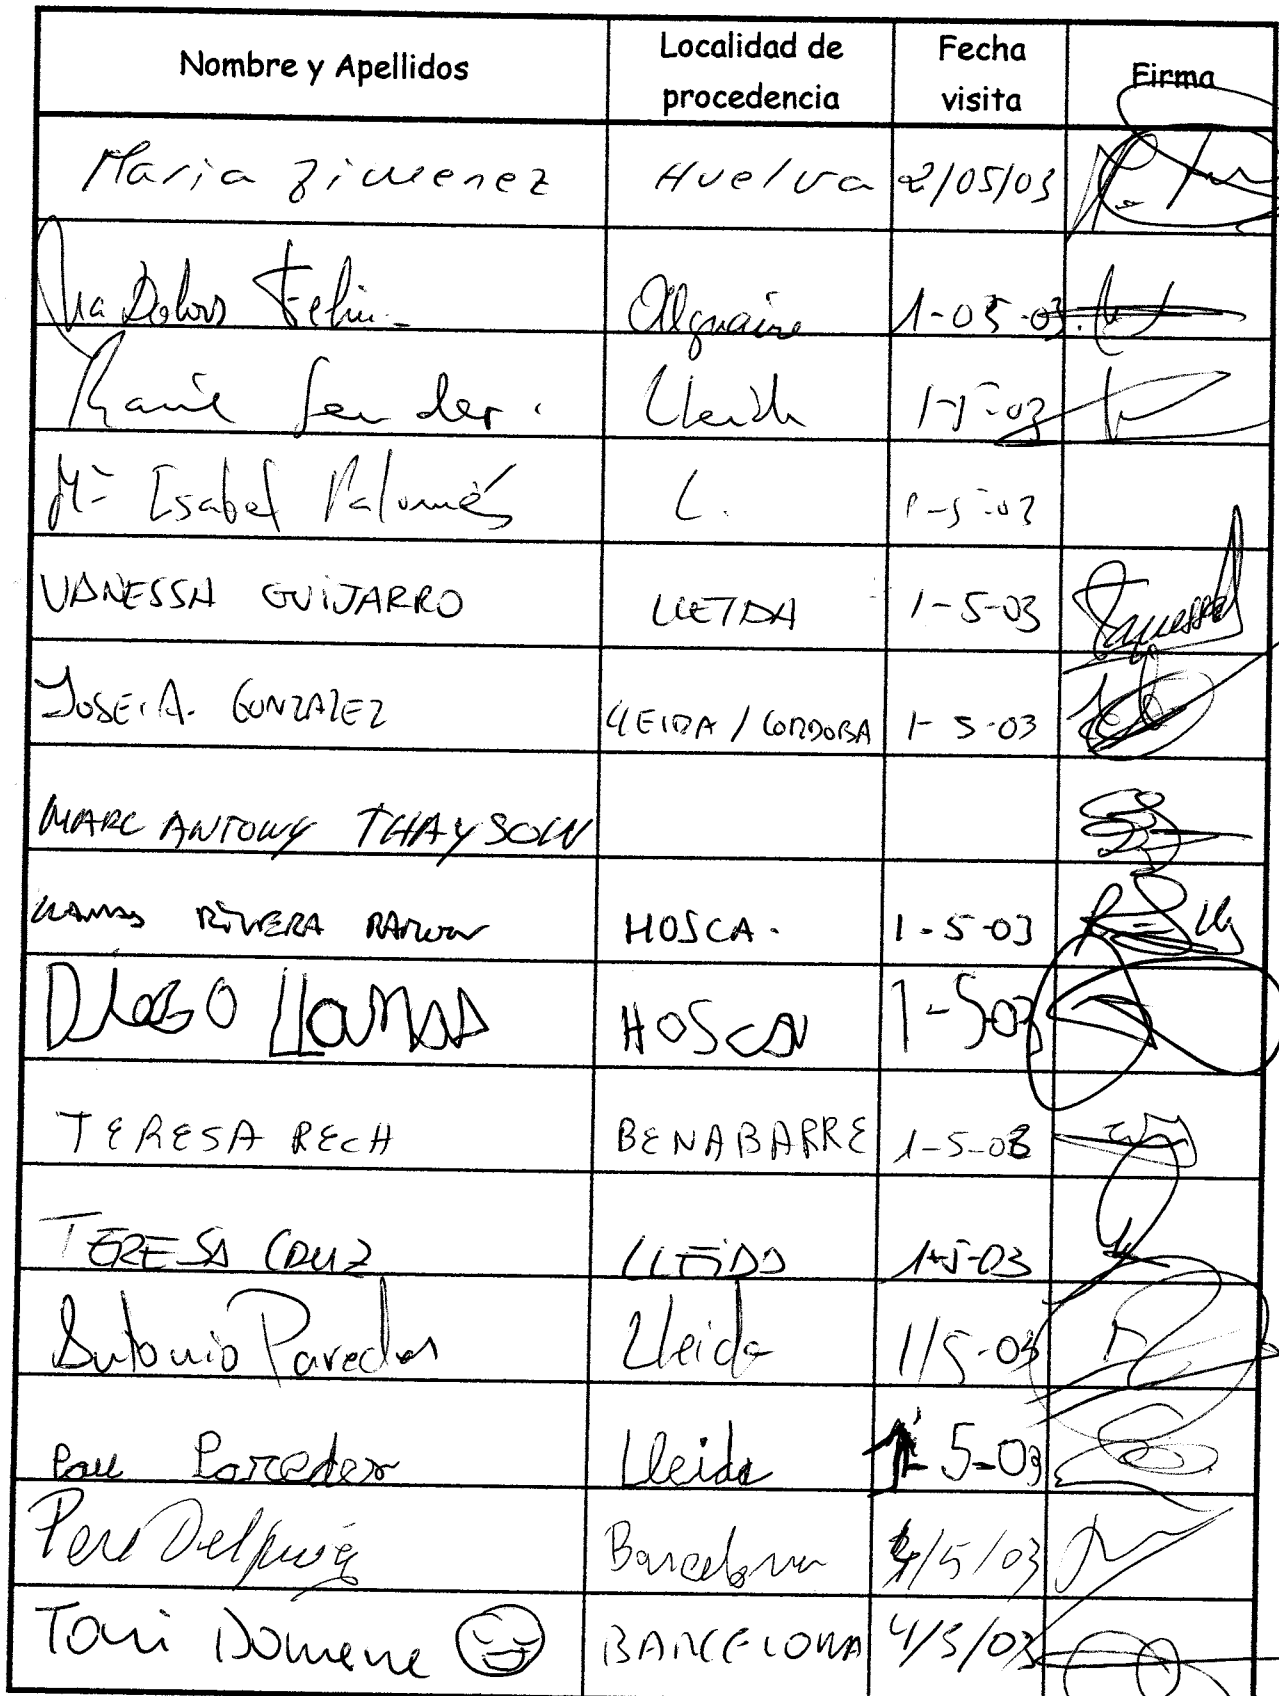 Nombre y Apellidos Localidad de procedencia Fecha visita Firma
Maria Zimenez Huelva 2/05/03
Ma Dolors Feliu Alguaire 1-05-03
Lleida 1-5-03
Mª Isabel Palomés L. 1-5-03
VANESSA GUIJARRO LLEIDA 1-5-03 Vanessa
JOSE A. GONZALEZ LLEIDA / CORDOBA 1-5-03
MARC ANTONY THAYSON
LLAMAS RIVERA RAMON HOSCA. 1-5-03
DIEGO LLAMAS HOSCA 1-5-03
TERESA RECH BENABARRE 1-5-03
TERESA CRUZ LLEIDA 1-5-03
Antonio Paredes Lleida 1/5-03
Pau Paredes Lleida 1-5-03
Pere Delpuig Barcelona 4/5/03
Toni Domene BARCELONA 4/5/03